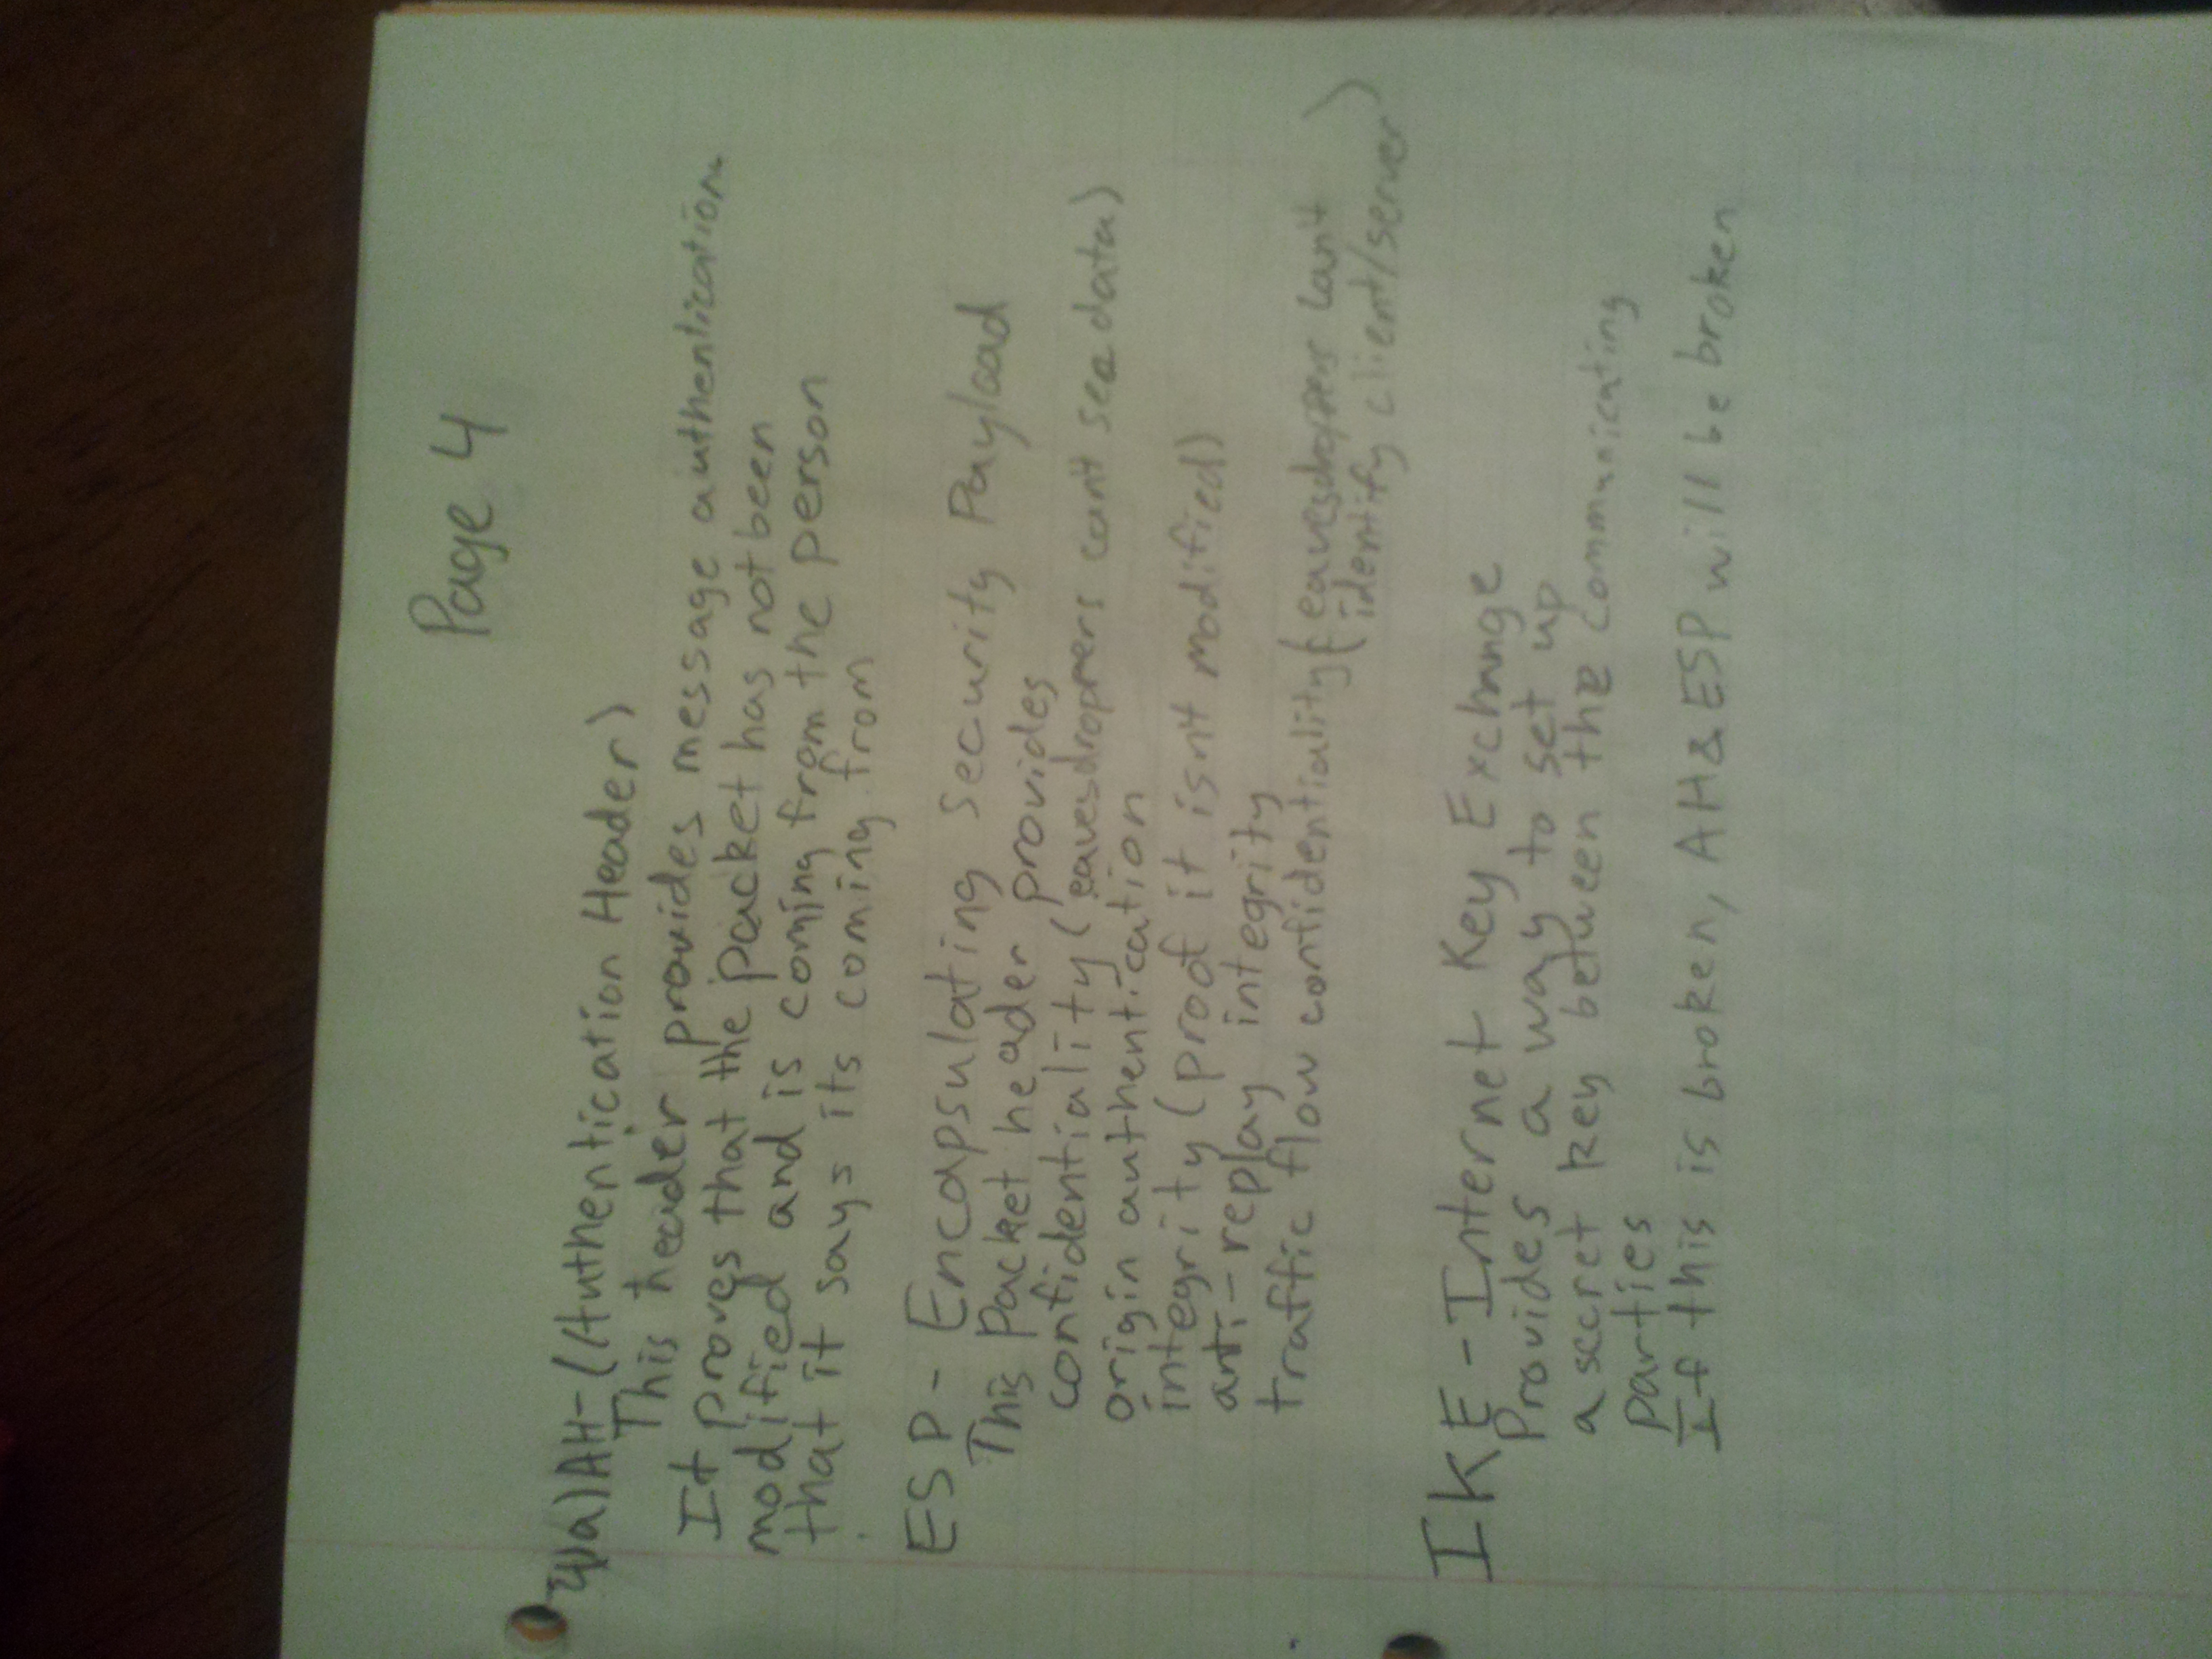 Page 4
a) AH-(Authentication Header)
This header provides message authentication
It proves that the packet has not been
modified and is coming from the person
that it says its coming from
ESP- Encapsulating Security Payload
This Packet header provides
confidentiality (eavesdroppers cant see data)
origin authentication
integrity (proof it isnt modified)
anti-replay integrity
traffic flow confidentiality (eavesdroppers cant
identify client/server)
IKE - Internet Key Exchange
Provides a way to set up
a secret key between the communicating
parties
If this is broken, AH & ESP will be broken